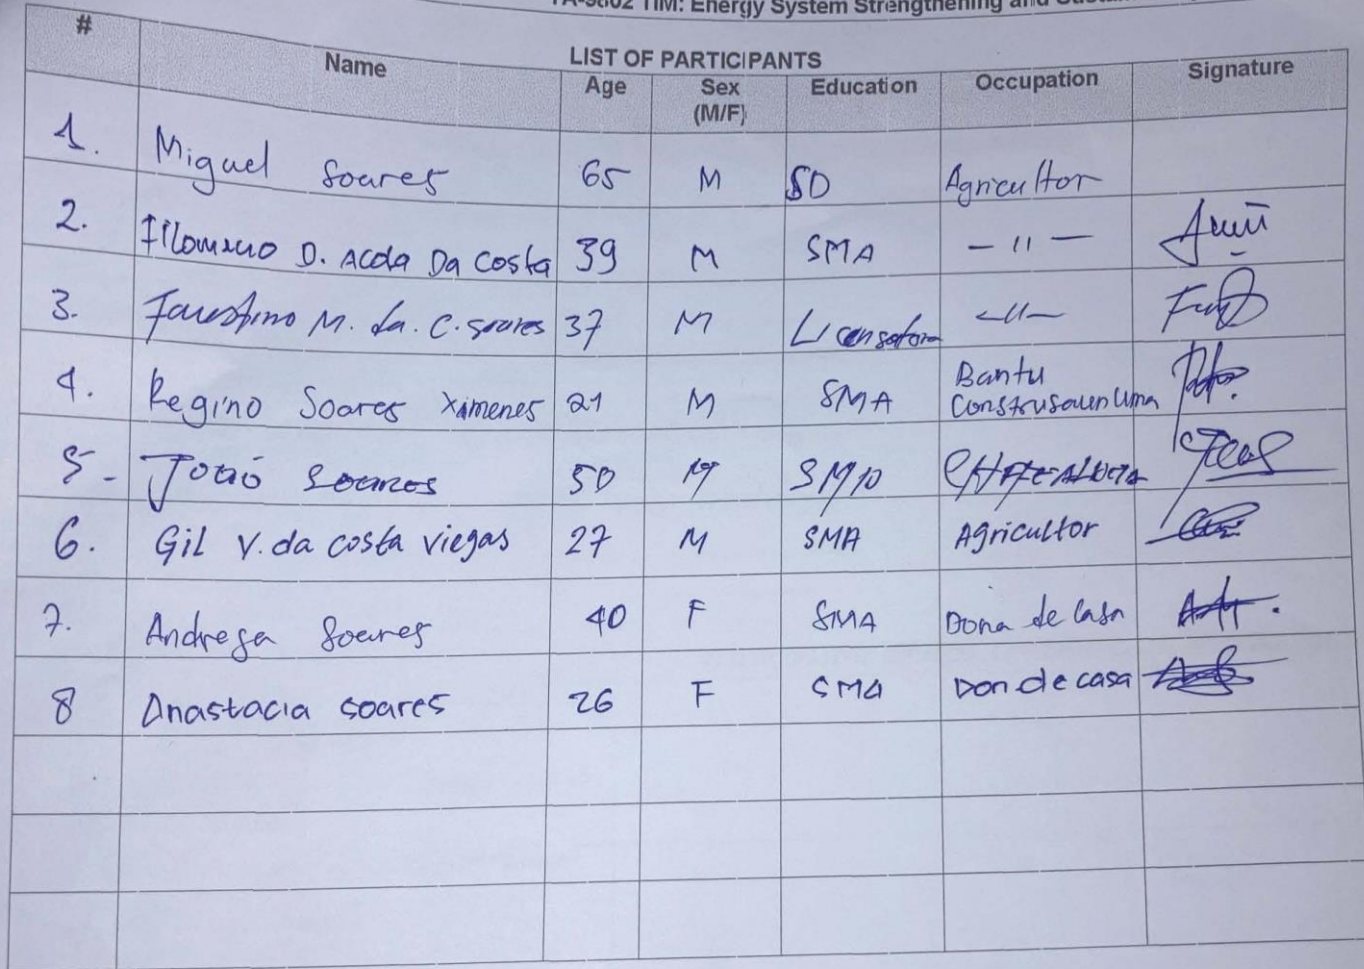 TIM: Energy System Strengthening and
LIST OF PARTICIPANTS
# Name Age Sex (M/F) Education Occupation Signature
1. Miguel Soares 65 M SD Agricultor
2. D. Acola Da Costa 39 M SMA — 11 —
3. Faustino M. da. C. soares 37 M — 11 —
4. Regino Soares Ximenes 21 M SMA Bantu
5- João Soares 50 M
6. Gil V. da costa viegas 27 M SMA Agricultor
7. Andreza Soares 40 F SMA Dona de Casa
8 Anastacia soares 26 F SMA Don de casa